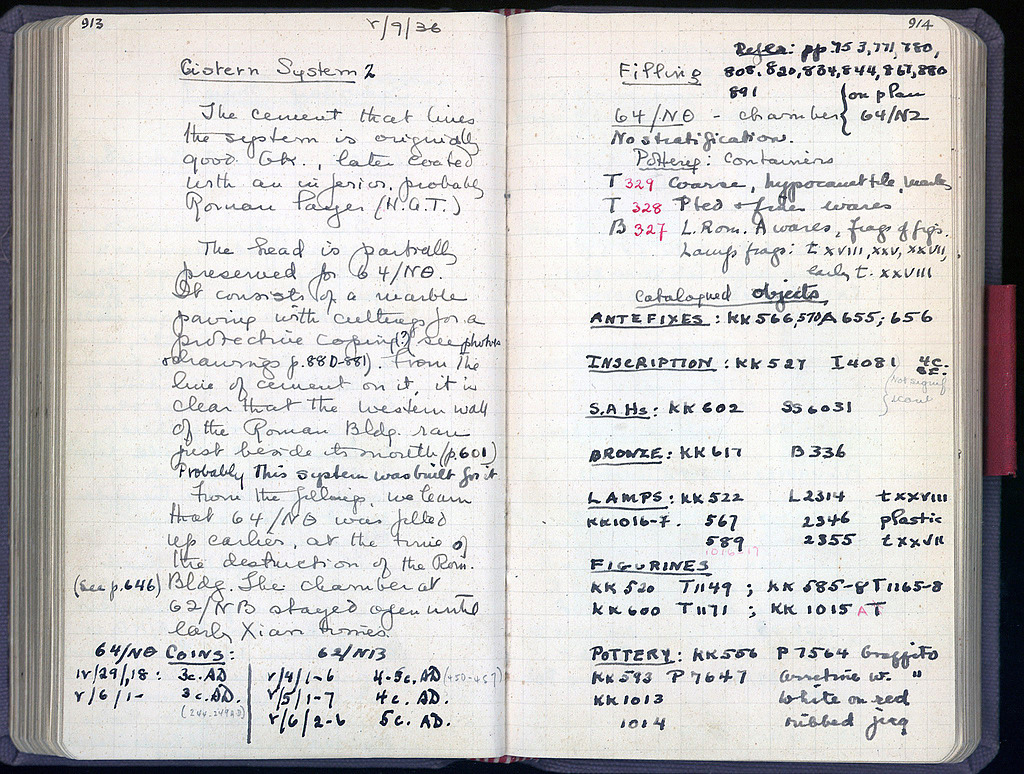 913
V/9/36
Cistern System 2
The cement that lines
the system is originally
good Gk., later coated
with an inferior, probably
Roman layer (H.A.T.)
The head is partially
preserved for 64/ΝΘ.
It consists of a marble
paving with cuttings for a
protective coping(?) see photos
drawings p.880-881). From the
line of cement on it, it is
clear that the western wall
of the Roman Bldg. ran
just beside its mouth (p.601)
Probably this system was built for it
From the fillings, we learn
that 64/ΝΘ was filled
up earlier at the time of
the destruction of the Rom.
(See p.646) Bldg. The chamber at
62/ΝΒ stayed open until
early Xian times.
64/ΝΘ COINS: 62/ΝΒ
IV/29/18: 3c. AD V/4/1-6 4-5c. AD (450-457)
V/6/1- 3c. AD. V/5/1-7 4c. AD.
(244-249 AD) V/6/2-6 5c. AD.
914
Refer: pp 753, 771, 780,
Filling 808, 820, 834, 844, 867, 880
891 on plan
64/ΝΘ - chamber 64/Ν2
No stratification.
Pottery: containers
T 329 Coarse, hypocaust tile,
T 328 Pted + finer wares
B 327 L. Rom. A wares, frags of figs.
Lamp frags: t XVIII, XXV, XXVII,
early t. XXVIII
Catalogued objects
ANTEFIXES: KK566, 570 A 655; 656
INSCRIPTION: KK527 I 4081 4c.
BF.
Not signif
icant
S.A.Hs: KK602 SS6031
BRONZE: KK617 B 336
LAMPS: KK522 L2314 t XXVIII
KK1016-7. 567 2346 plastic
589 2355 t XXVII
1016-17
FIGURINES
KK 520 T1149; KK 585-8 T1165-8
KK600 T1171; KK 1015 A T
POTTERY: KK556 P 7564 Graffito
KK593 P 7647 arretine w. "
KK1013 White on red
1014 ribbed jug